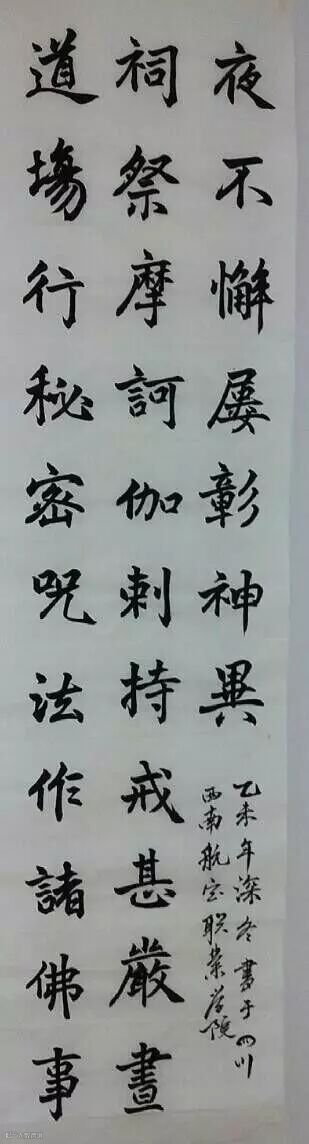 道場行秘密呪法作諸佛事
祠祭摩訶伽剌持戒甚嚴晝
夜不懈屡彰神異
乙未年深冬書于四川
西南航空职業学院